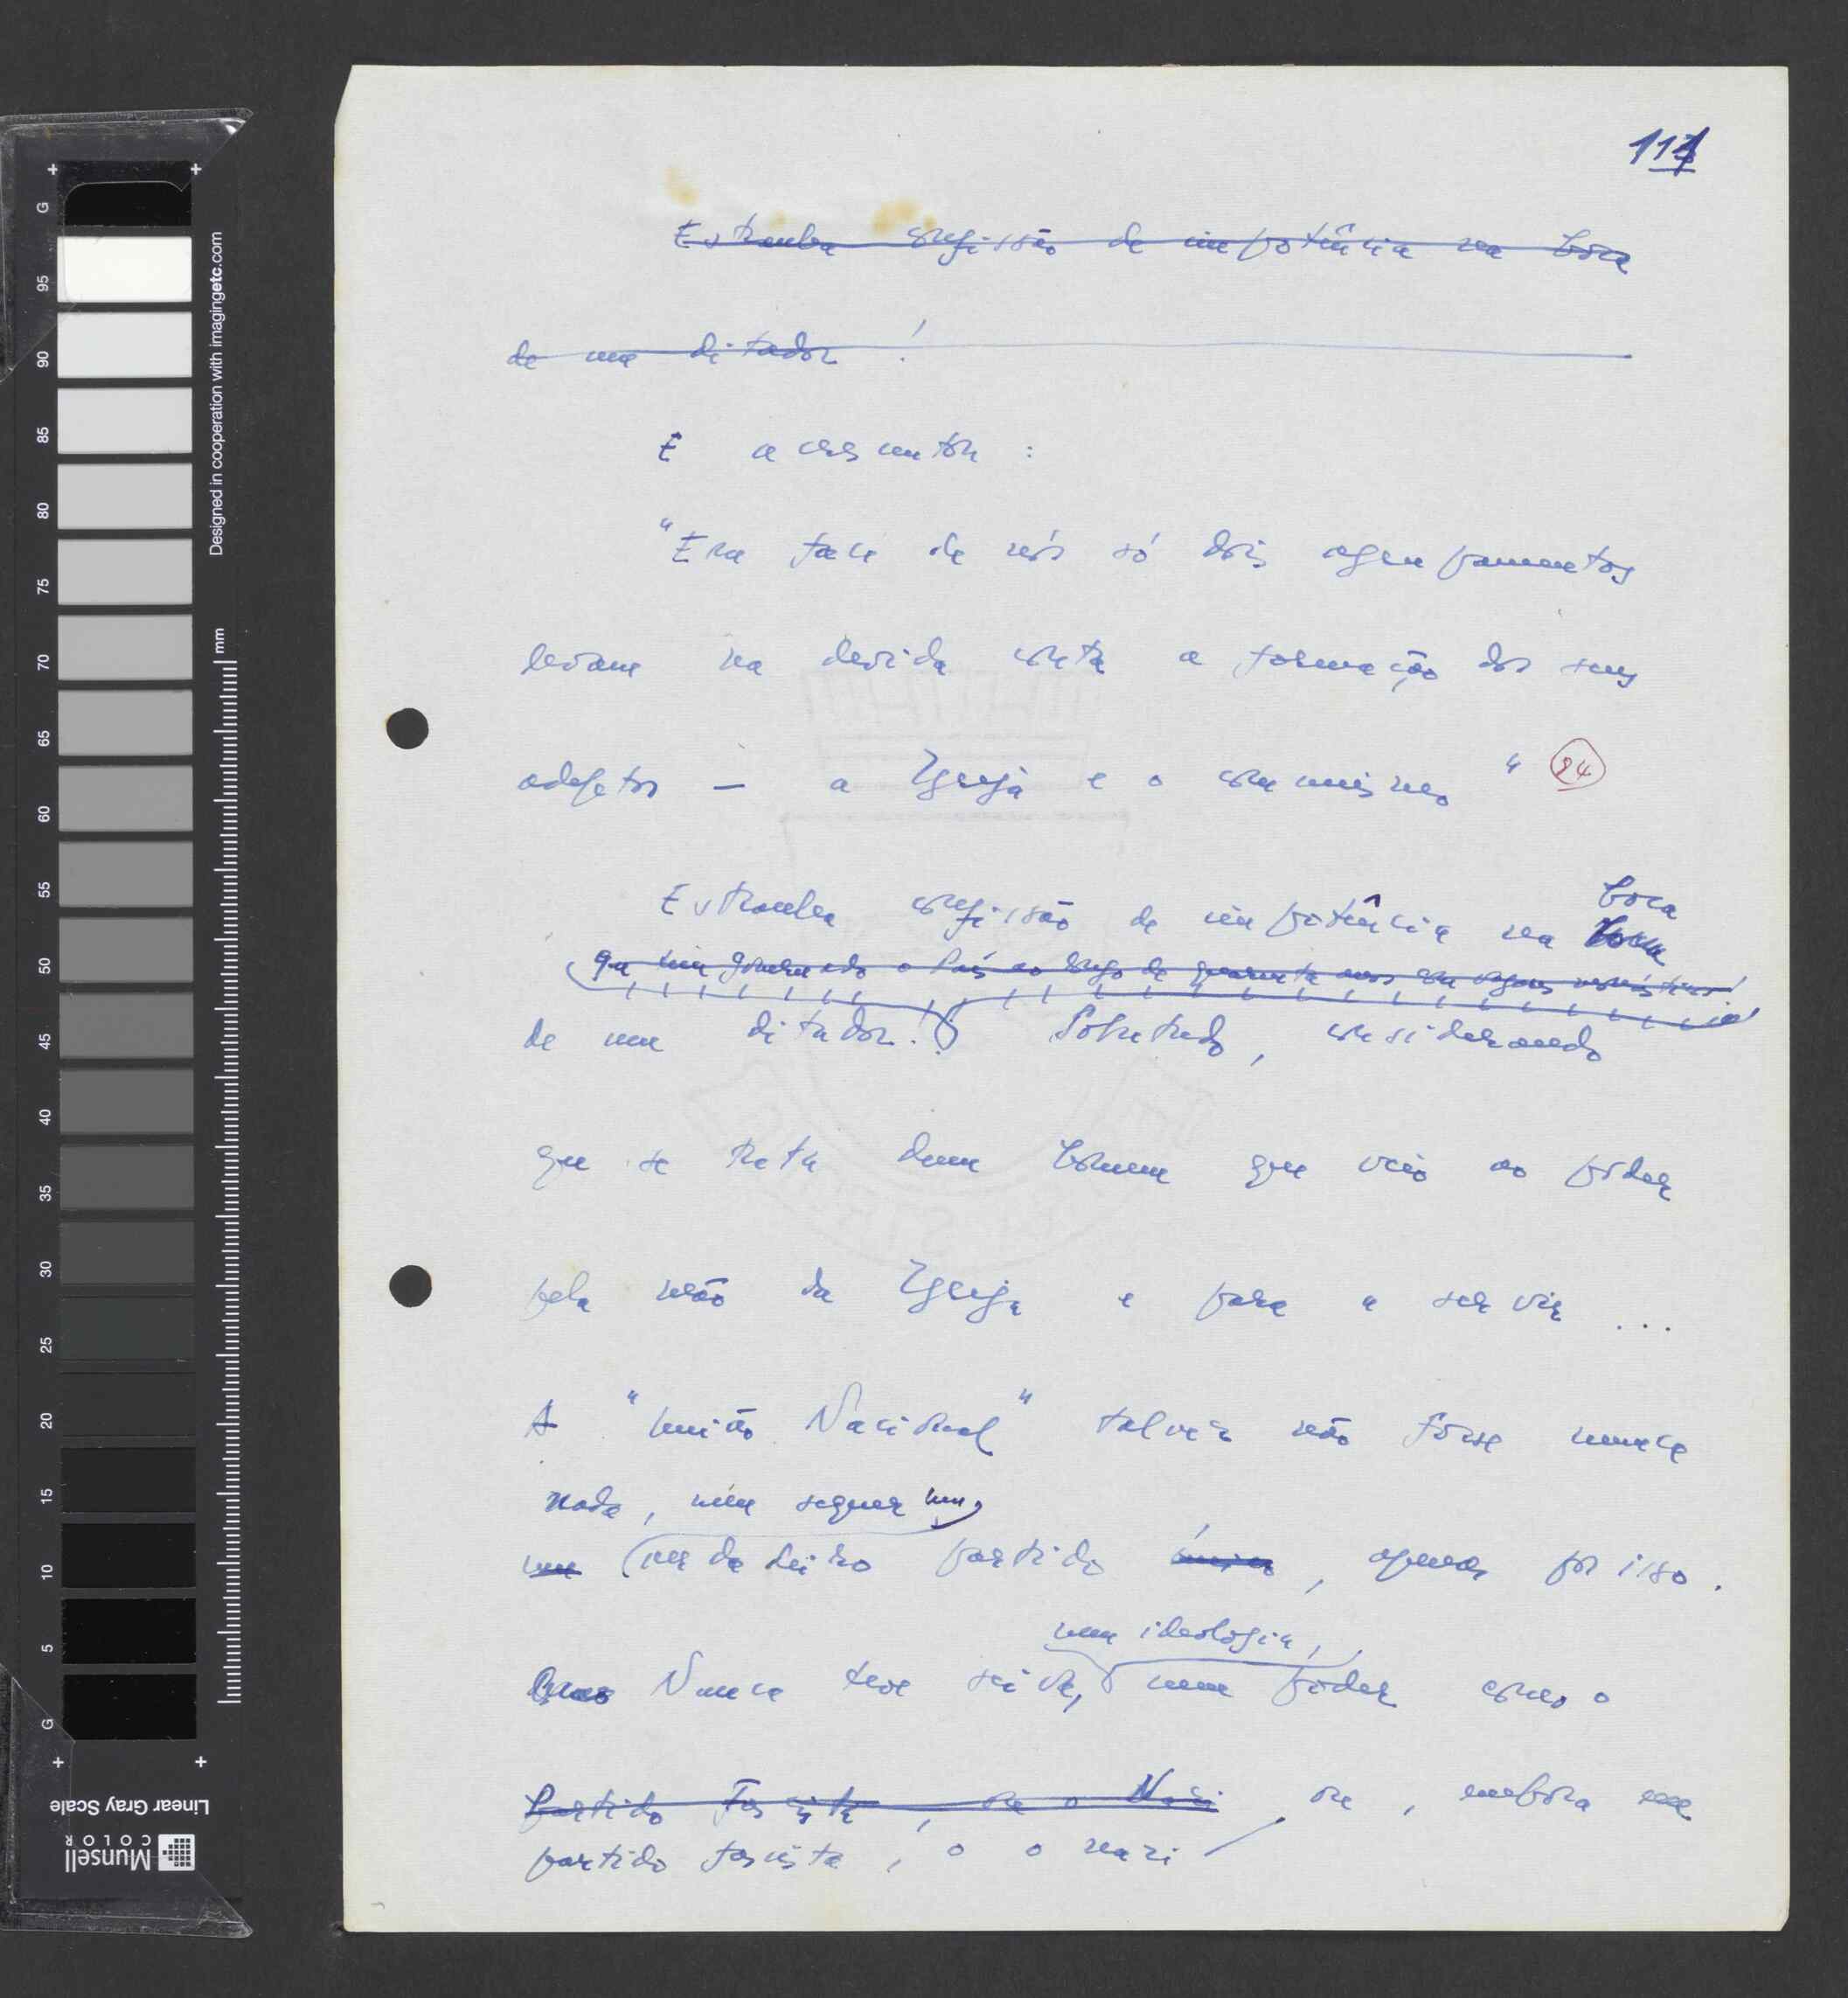 111
Estranha confissão de impotência na boca
de um ditador!
E acrescenta:
"Em face de nós só dois agrupamentos
levam na devida conta a formação dos seus
adeptos — a Igreja e o comunismo" 24
boca
Estranha confissão de impotência na
que vem governando o País ao longo de quarenta anos
de um ditador! Sobretudo, considerando
que se trata dum homem que veio ao poder
pela mão da Igreja e para a servir ...
A "União Nacional" talvez não fosse nunca
nada, nem sequer um
um verdadeiro partido único, apenas por isso.
nem ideologia,
Nunca teve seiva, nem poder como o
Partido Fascista, ou o Nazi, ou, embora
partido fascista, o nazi
G 95 90 85 80 75 70 65 60 55 50 45 40 35 30 25 20 15 10 5 G
mm
Designed in cooperation with imagingetc.com
Linear Gray Scale
Munsell
COLOR